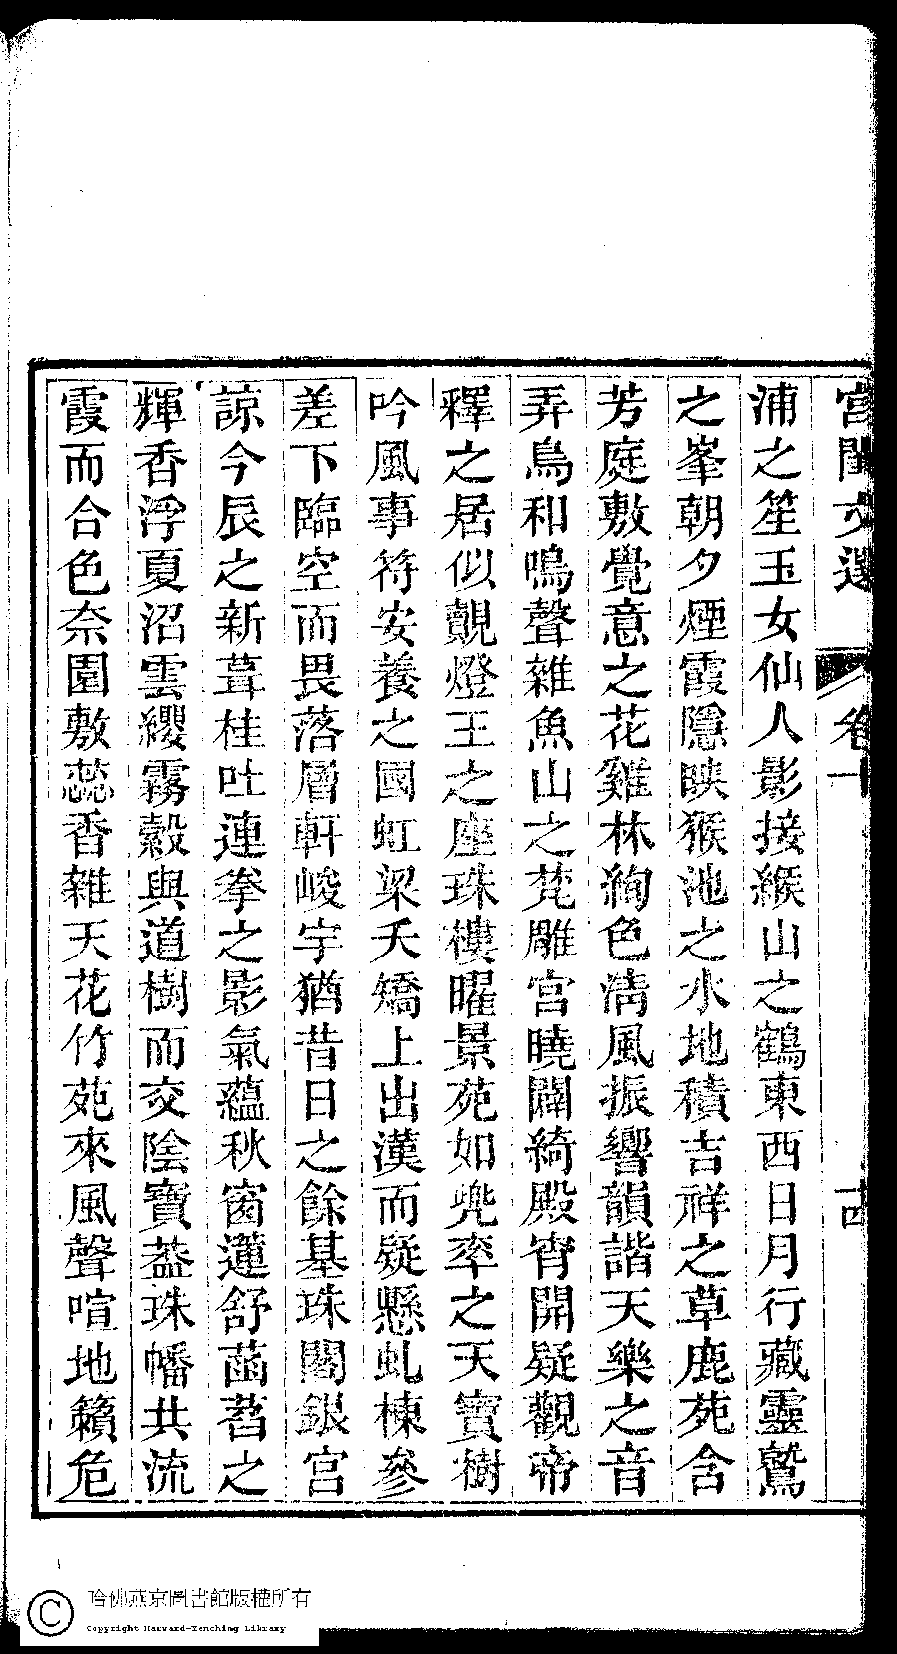 宮閨文選 卷十 十四
浦之笙玉女仙人影接緱山之鶴東西日月行藏靈鷲
之峯朝夕煙霞隱映猴池之水地積吉祥之草鹿苑含
芳庭敷覺意之花雞林絢色清風振響韻諧天樂之音
弄鳥和鳴聲雜魚山之梵雕宮曉闢綺殿宵開疑觀帝
釋之居似覿燈王之座珠樓曜景苑如兜率之天寶樹
吟風事符安養之國虹梁夭矯上出漢而疑懸虬棟參
差下臨空而畏落層軒峻宇猶昔日之餘基珠闕銀宮
諒今辰之新葺桂吐連拳之影氣蘊秋窗蓮舒菡萏之
輝香浮夏沼雲纓霧縠與道樹而交陰寶葢珠幡共流
霞而合色奈園敷蕊香雜天花竹苑來風聲喧地籟危
哈佛燕京圖書館版權所有
Copyright Harvard-Yenching Library